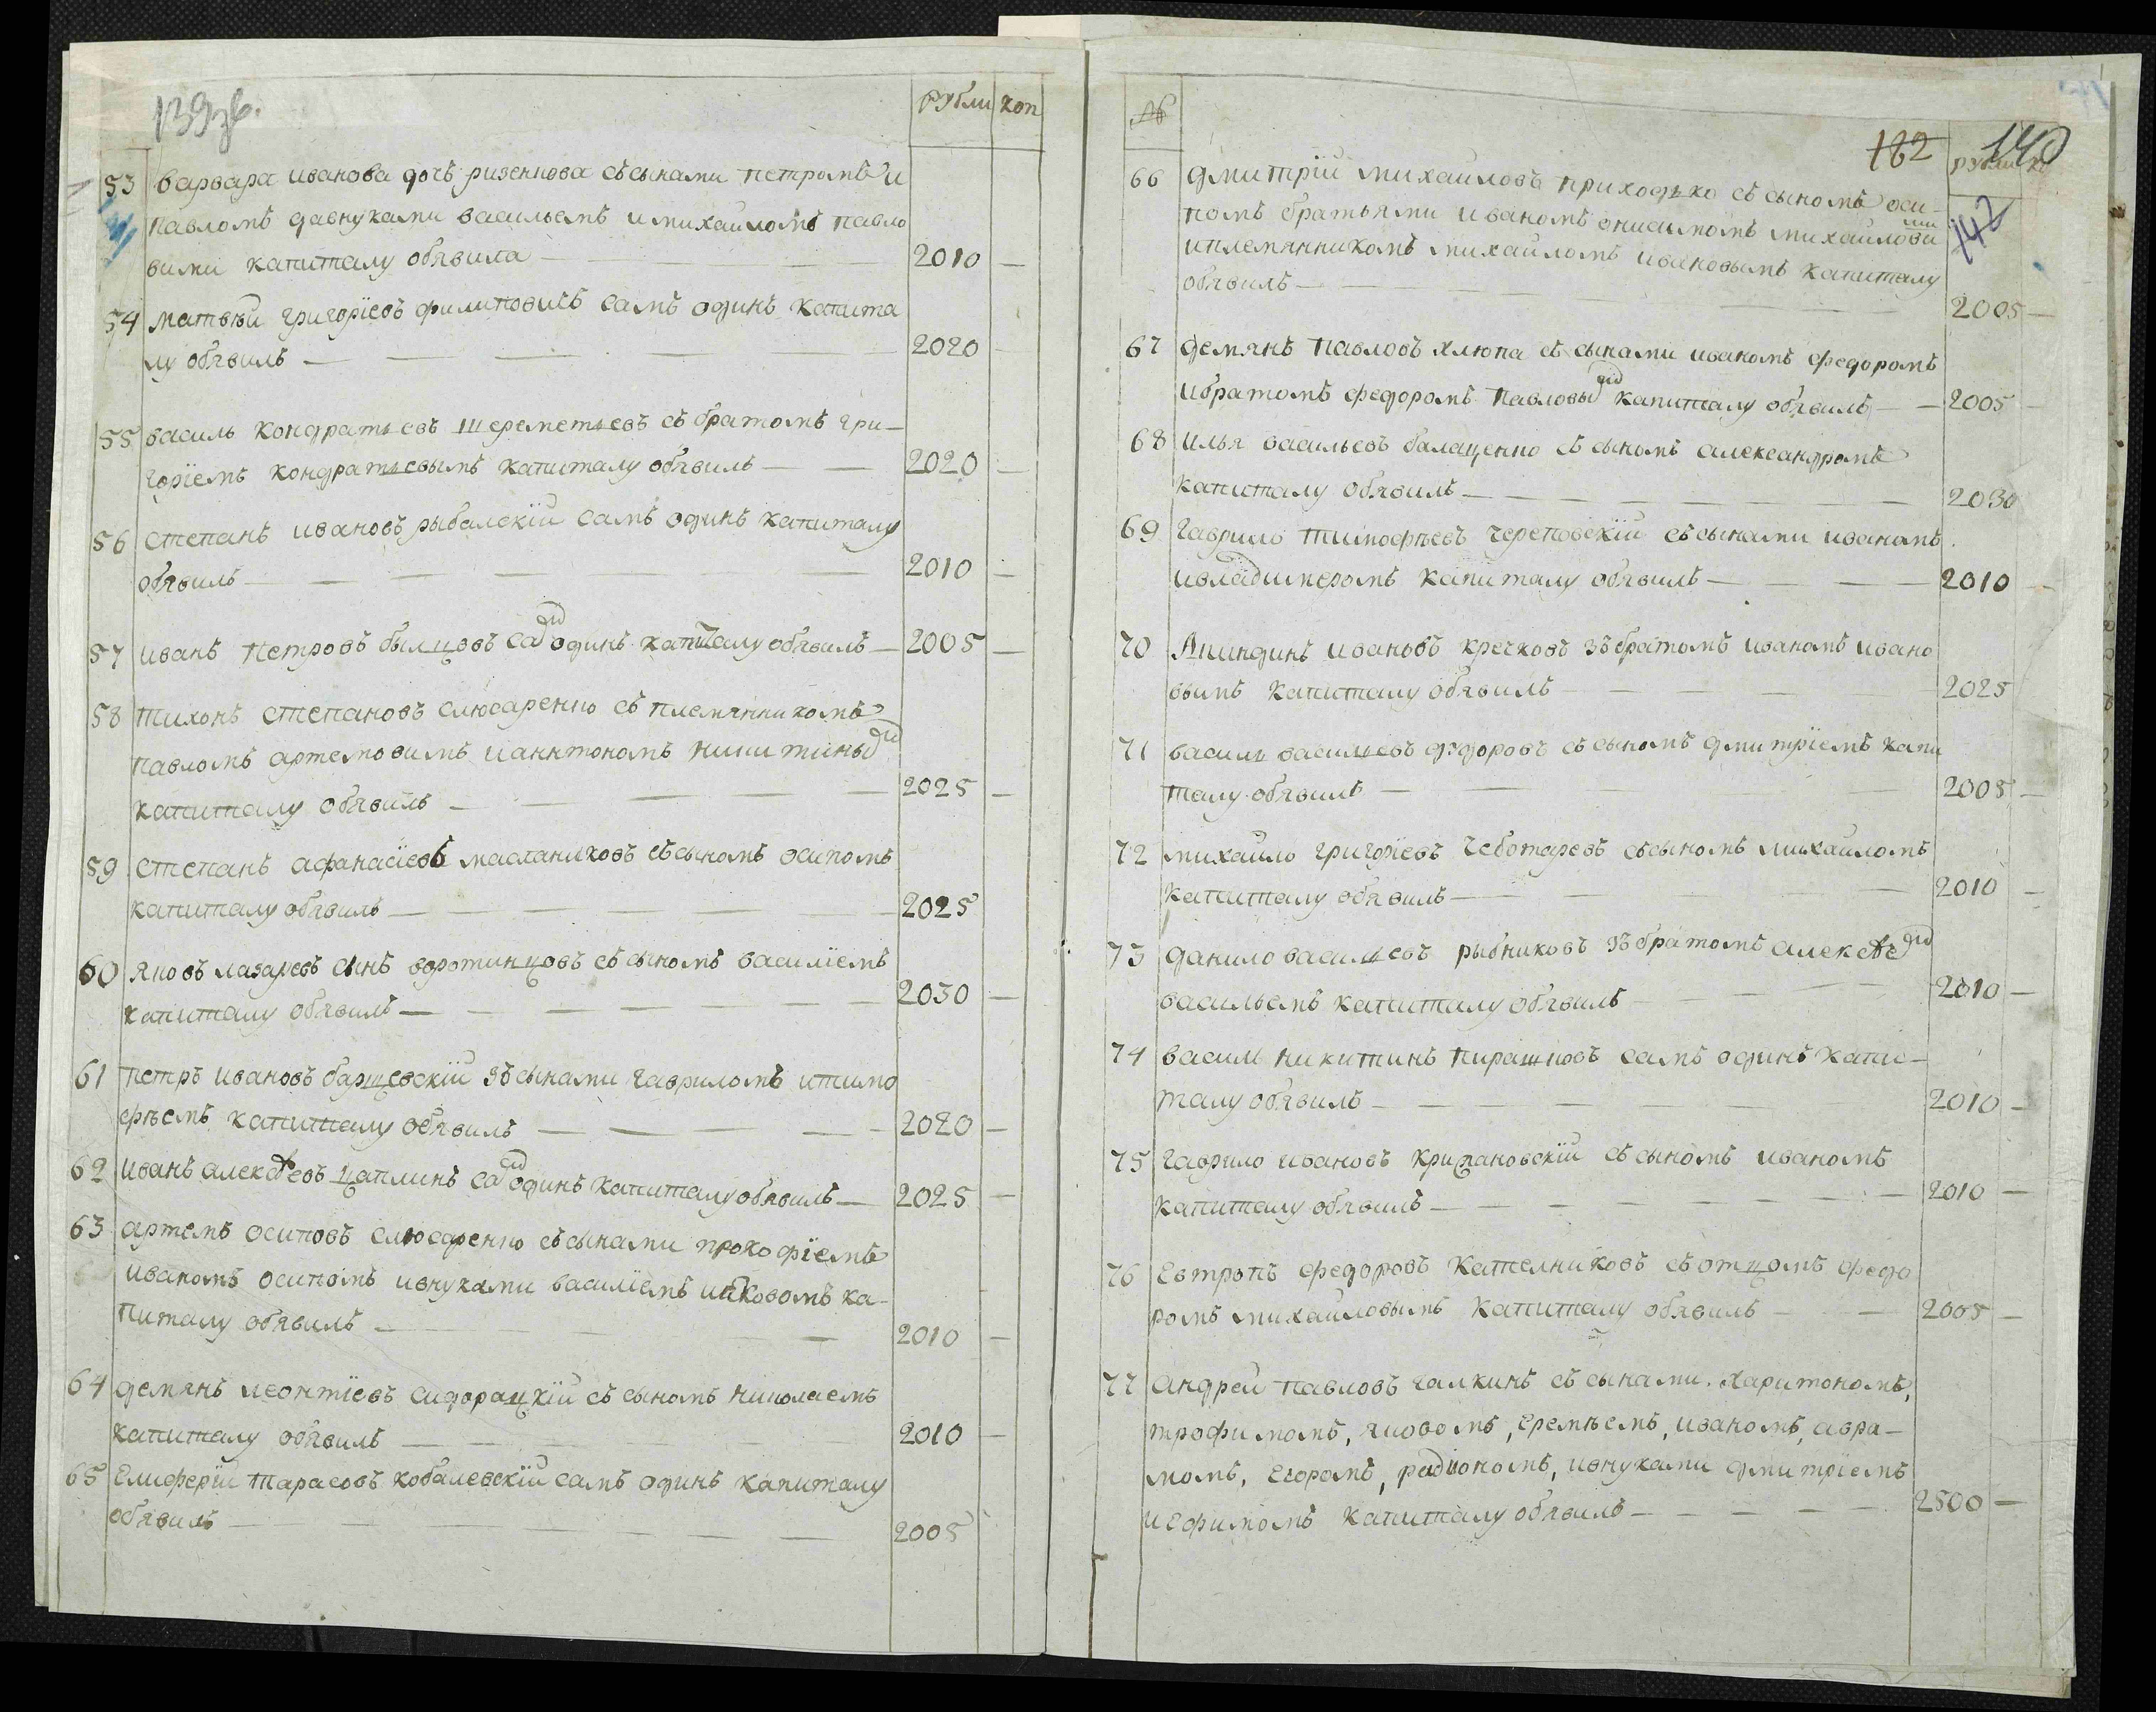 139зв.
Рубли коп
53 варвара иванова дочъ ризенкова съ сынами петромъ и
павломъ давнуками васильемъ и михаиломъ павло
вими капиталу обявила 2010
54 матвѣй григорїевъ филиповичъ самъ одинъ капита
лу обявилъ 2020
55 василь кондратьевъ шереметьевъ съ братомъ гри-
горїемъ кондратьевымъ капиталу обявилъ 2020
56 степанъ ивановъ рыбалскїй самъ одинъ капиталу
обявилъ 2010
57 иванъ петровъ былцовъ самъ одинъ капиталу обявилъ 2005
58 тихонъ степановъ слюсаренко съ племянникомъ
павломъ артемовимъ и аннтономъ никитины
капиталу обявилъ 2025
59 степанъ афанасїевъ маслаников съ сыномъ осипомъ
капиталу обявилъ 2025
60 яковъ лазаревъ сынъ воротинцовъ съ сыномъ василїемъ
капиталу обявилъ 2030
61 петръ ивановъ барщевскїй зъ сынами гавриломъ и тимо
фѣемъ капиталу обявилъ 2020
62 иванъ алексѣевъ цаплинъ самъ одинъ капиталу обявилъ 2025
63 артемъ осиповъ слюсаренко съ сынами прокофїемъ
иваномъ осипомъ и внуками василїемъ и яковомъ ка-
питалу обявилъ 2010
64 демянъ леонтїевъ сидорацкїй съ сыномъ николаемъ
капиталу обявилъ 2010
65 Елиферїй тарасовъ кобалевскїй самъ одинъ капиталу
обявилъ 2005
№ 182 140
рубли ко
142
66 дмитрїй михаиловъ приходько съ сыномъ оси-
помъ братьями иваномъ онисимомъ михаиловими
и племянникомъ михаиломъ ивановымъ капиталу
обявилъ 2005
67 демянъ павловъ хлюпа съ сынами иваномъ федоромъ
и братомъ федоромъ павловым капиталу обявилъ 2005
68 илья васильевъ балащенко съ сыномъ александромъ
капиталу обявилъ 2030
69 гаврило тимофѣевъ череповскїй съ сынами иваномъ
и владимиромъ капиталу обявилъ 2010
70 Акиндинъ ивановъ кречковъ зъ братомъ иваномъ ивано
вымъ капиталу обявилъ 2025
71 василь васильевъ федоровъ съ сыномъ дмитрїемъ капи
талу обявилъ 2005
72 михаило григорїевъ чеботаревъ съ сыномъ михаиломъ
капиталу обявилъ 2010
73 данило васильевъ рыбников зъ братомъ алексѣем
васильемъ капиталу обявилъ 2010
74 василь никитинъ пирашковъ самъ одинъ капи-
талу обявилъ 2010
75 гаврило ивановъ крижановскїй съ сыномъ иваномъ
капиталу обявилъ 2010
76 Евтропъ федоровъ кателниковъ съ отцомъ федо
ромъ михаиловымъ капиталу обявилъ 2005
77 андреи павловъ галкинъ съ сынами. харитономъ,
трофимомъ, яковомъ, еремѣемъ, иваномъ, авра-
момъ, егоромъ, радиономъ, и внуками дмитрїемъ
и ефимомъ капиталу обявилъ 2500